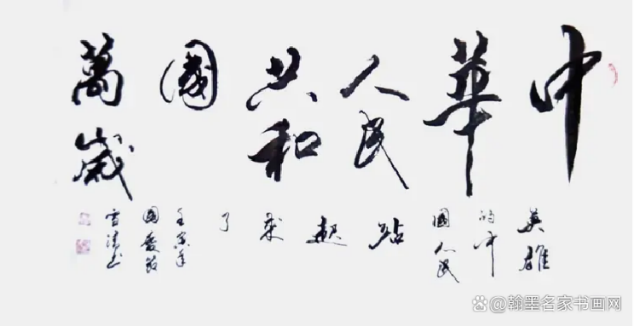 中華人民共和國萬歲
英雄的中國人民站起來了
壬寅年國慶節
翰墨名家书画网